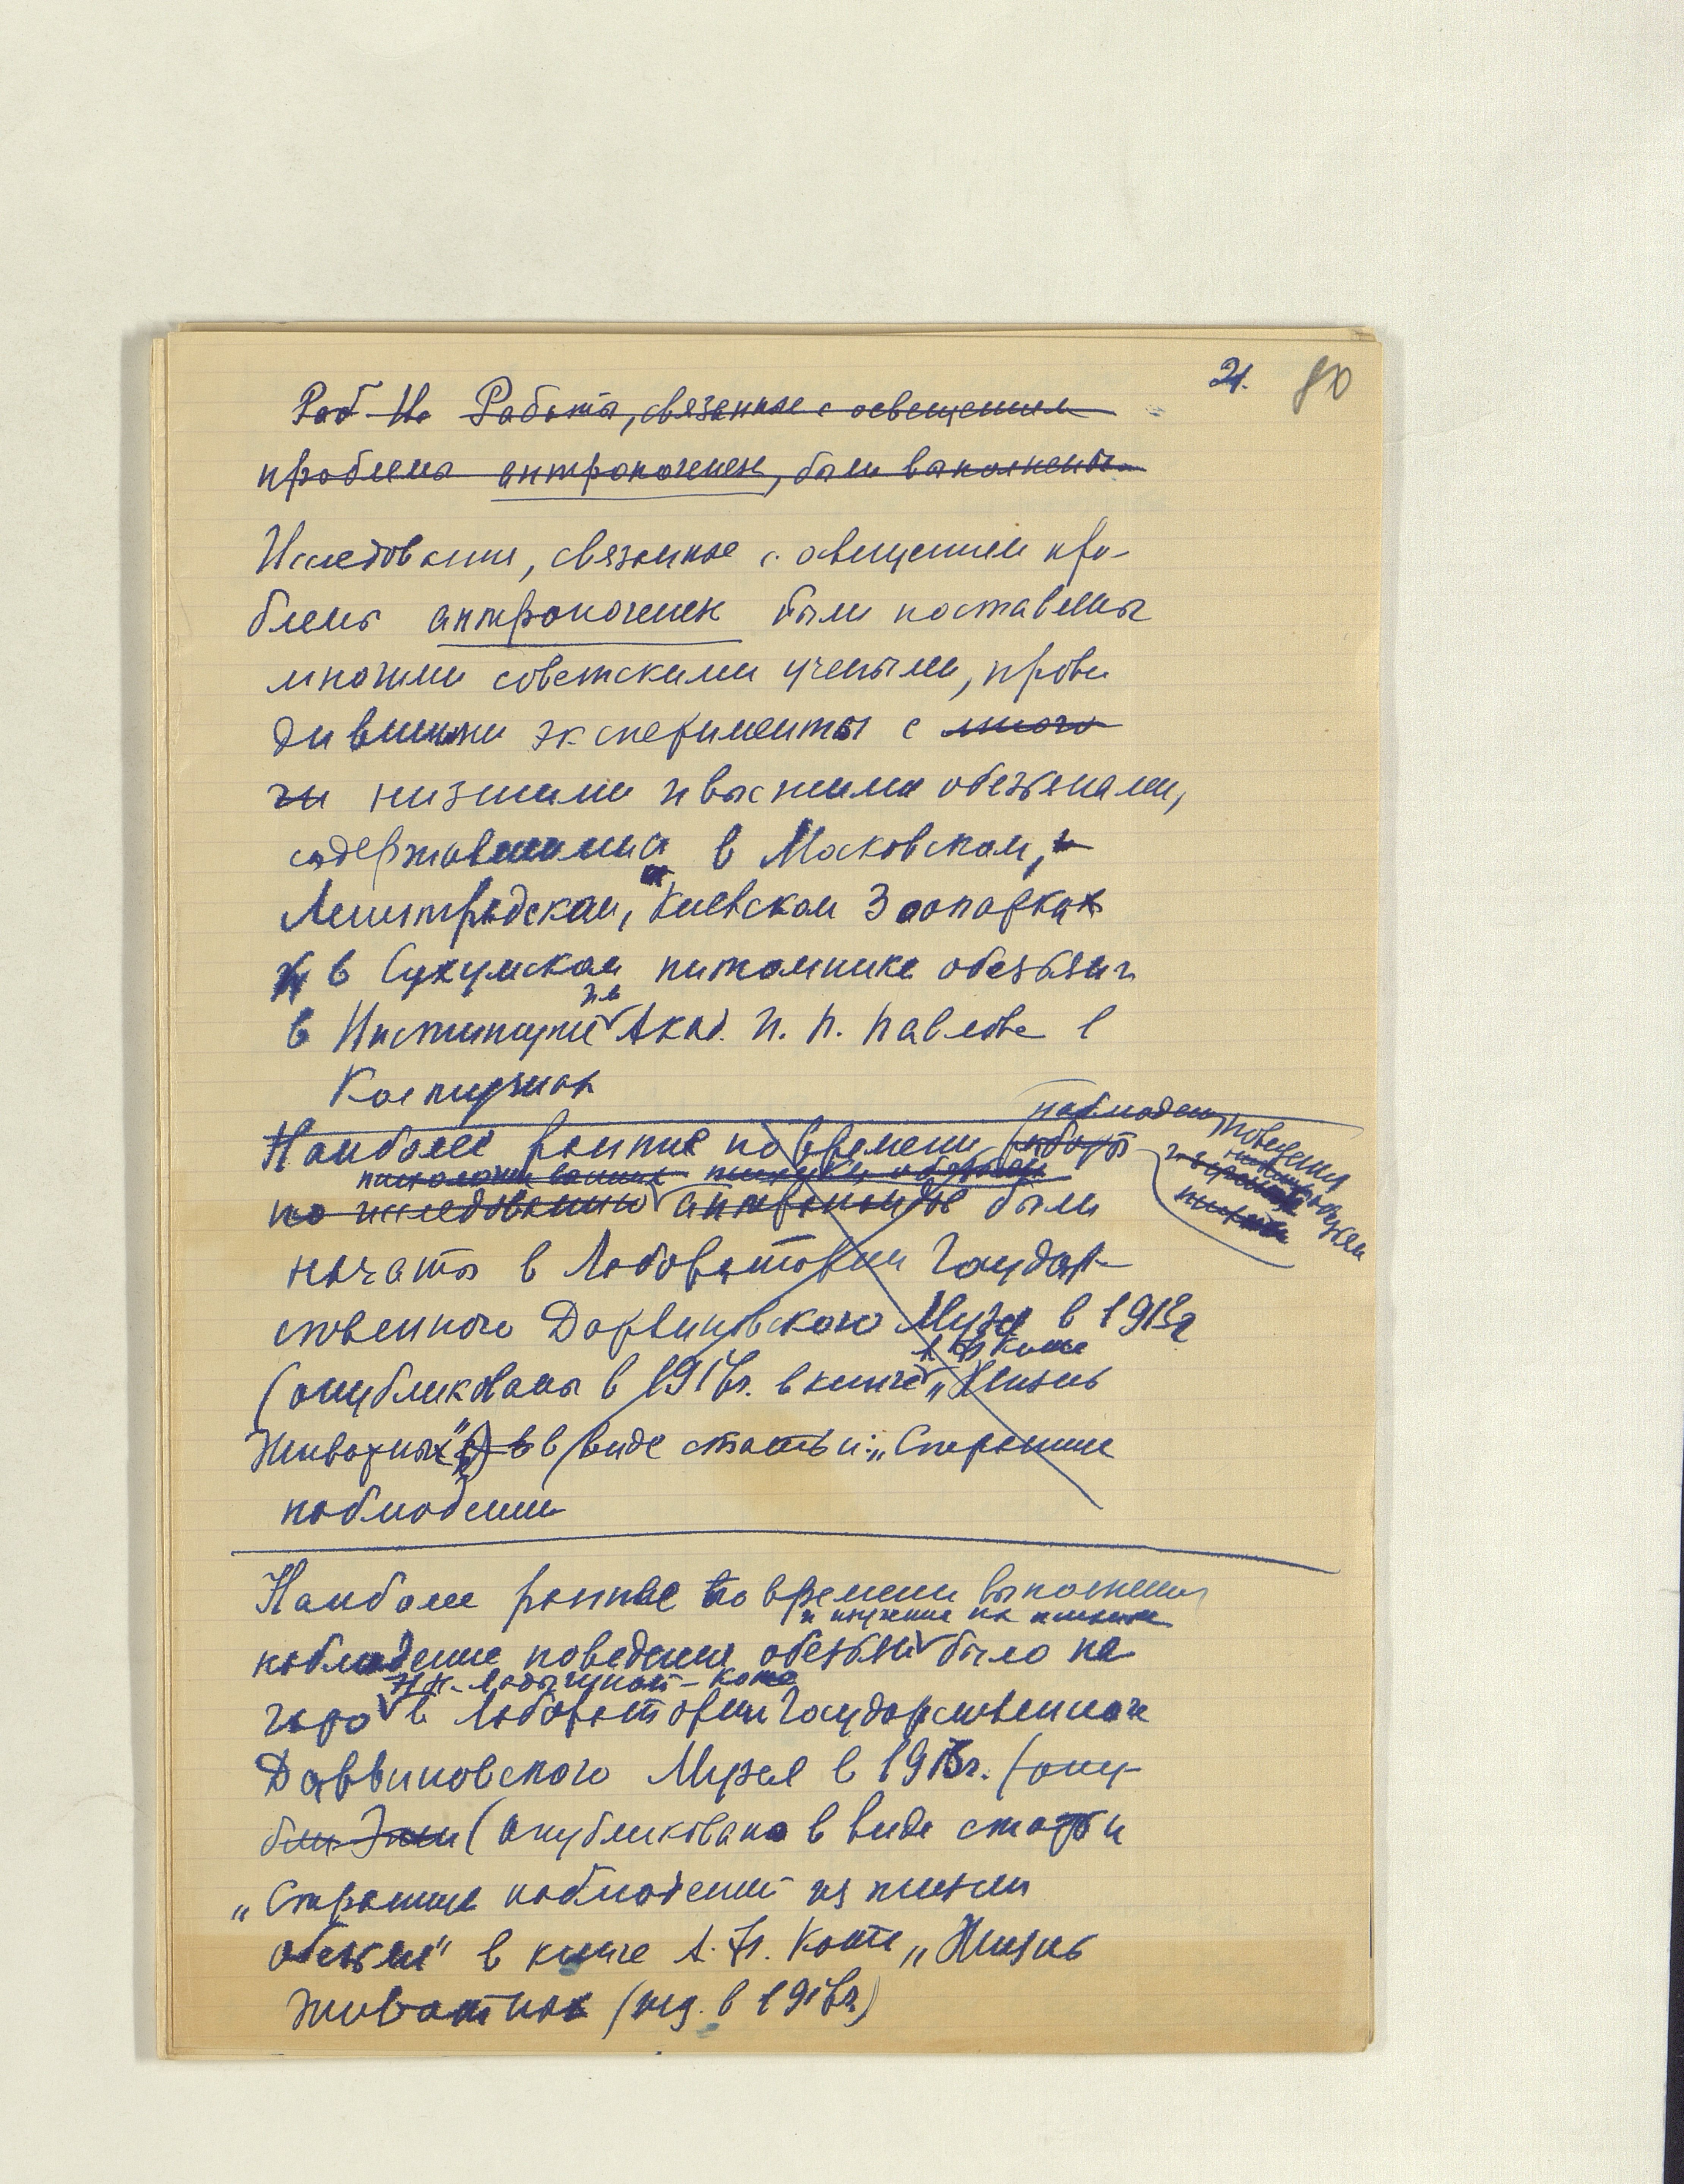 21. 80
Раб Из Работы, связанные с освещением
проблемы антропогенеза, были выполнены
Исследования, связанные с освещением про-
блемы антропогенеза были поставлены
многими советскими учеными, прово
дившими эксперименты с много
чи низшими и высшими обезьянами,
содержавшимися в Московском, и
Ленинградском, Киевском Зоопарках
и в Сухумском питомнике обезьян и
в Институте им Акад. И. П. Павлова в
Колтушах
наблюден поведения
Наиболее ранние по времени работы
психологии высших обезьян
по исследованию антропоидов были
начаты в Лаборатории Государ-
ственного Дарвиновского Музея в 1913г
А Ф Котс
(опубликованы в 1916г. в книге „Жизнь
Животных") в виде статьи: „Странички
наблюдений
Наиболее раннее по времени выполнения
и изучение их
наблюдение поведения обезьян было на
Н.Н. Ладыгиной-Котс
чато в Лаборатории Государственного
Дарвиновского Музея в 1913г. (опу-
бли (опубликовано в виде статьи
„Странички наблюдений из жизни
обезьян" в книге А. Ф. Котс „Жизнь
животных (изд. в 1916г)